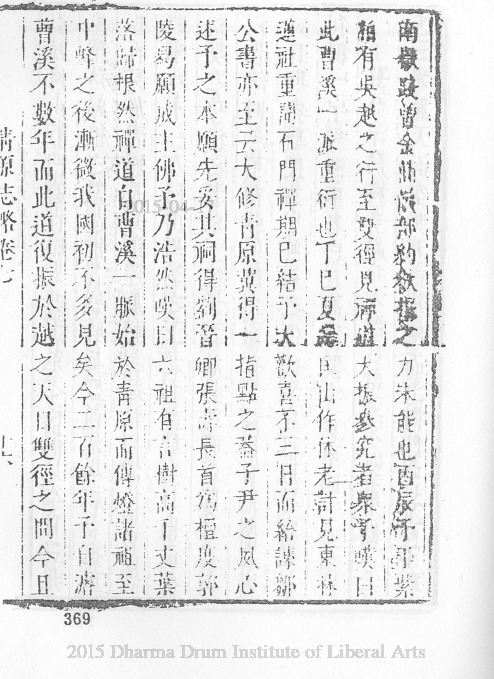 南嶽設曾金曲儀部豹欲振之力未能也丙辰予訪紫
柏有吳越之行至雙徑見禪道大振參究者眾予嘆曰
此曹溪一派重衍也丁巳夏匡山作休老計見東林
蓮社重開石門禪期已結予大歡喜不三日而給諫鄒
公書亦至云大修青原冀得一指點之蓋子尹之夙心
述予之本願先妥其祠得劉晉卿張壽長首為檀度郭
陵舄願成主佛予乃浩然嘆曰六祖有言樹高千丈葉
落歸根然禪道自曹溪一脈始於青原而傳燈諸祖至
中峰之後漸微我國初不多見矣今二百餘年予自滹
曹溪不數年而此道復振於越之天目雙徑之間今且
青原志略卷七 十六
369
2015 Dharma Drum Institute of Liberal Arts